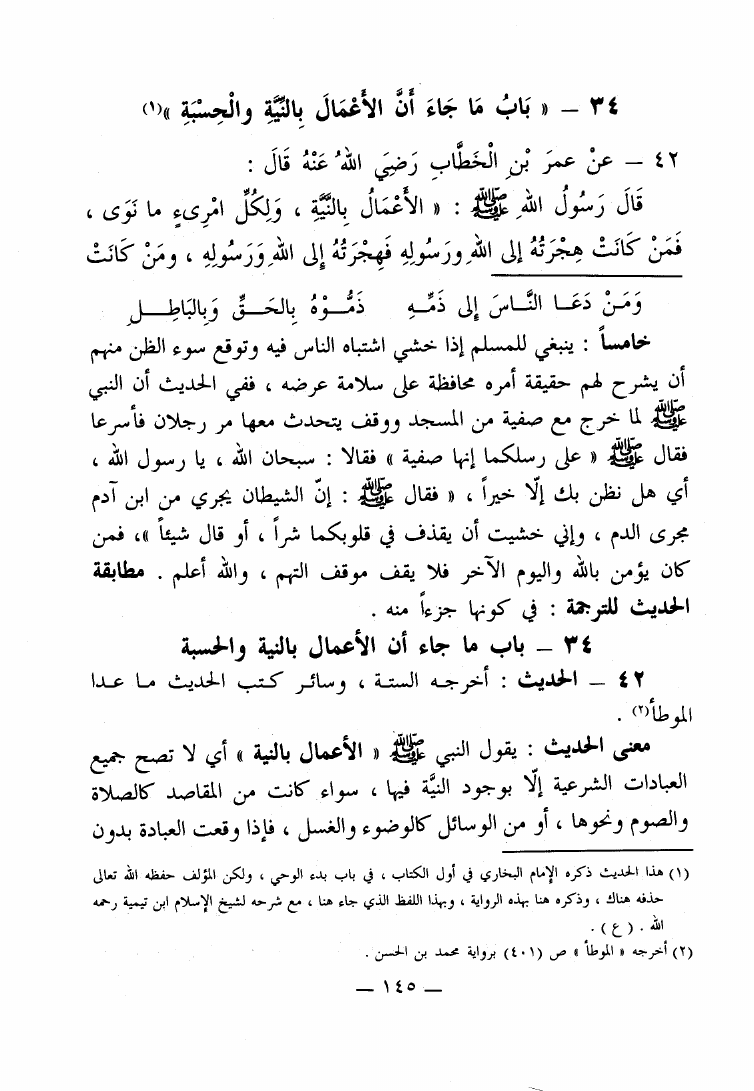 ٣٤ – « بَابُ مَا جَاءَ أَنَّ الأَعْمَالَ بِالنِّيَّةِ والْحِسْبَةِ »(١)
٤٢ – عنْ عمرَ بْنِ الْخَطَّابِ رَضِيَ اللهُ عَنْهُ قَالَ :
قَالَ رَسُولُ اللهِ ﷺ : « الأَعْمَالُ بِالنَّيَّةِ ، وَلِكُلِّ امْرِىءٍ ما نَوَى ،
فَمَنْ كَانَتْ هِجْرَتُهُ إلى اللهِ ورَسُولِهِ فَهِجْرَتُهُ إلى اللهِ وَرَسُولِهِ ، ومَنْ كَانَتْ
وَمَنْ دَعَا النَّاسَ إلى ذَمِّهِ ذَمُّوْهُ بِالحَقِّ وَبِالبَاطِلِ
خامساً : ينبغي للمسلم إذا خشي اشتباه الناس فيه وتوقع سوء الظن منهم
أن يشرح لهم حقيقة أمره محافظة على سلامة عرضه ، ففي الحديث أن النبي
ﷺ لما خرج مع صفية من المسجد ووقف يتحدث معها مر رجلان فأسرعا
فقال ﷺ « على رسلكما إنها صفية » فقالا : سبحان الله ، يا رسول الله ،
أي هل نظن بك إلّا خيراً ، « فقال ﷺ : إنّ الشيطان يجري من ابن آدم
مجرى الدم ، وإني خشيت أن يقذف في قلوبكما شراً ، أو قال شيئاً »، فمن
كان يؤمن بالله واليوم الآخر فلا يقف موقف التهم ، والله أعلم . مطابقة
الحديث للترجمة : في كونها جزءاً منه .
٣٤ – باب ما جاء أن الأعمال بالنية والحسبة
٤٢ – الحديث : أخرجه الستة ، وسائر كتب الحديث ما عدا
الموطأ(٢) .
معنى الحديث : يقول النبي ﷺ « الأعمال بالنية » أي لا تصح جميع
العبادات الشرعية إلّا بوجود النيَّة فيها ، سواء كانت من المقاصد كالصلاة
والصوم ونحوها ، أو من الوسائل كالوضوء والغسل ، فإذا وقعت العبادة بدون
(١) هذا الحديث ذكره الإمام البخاري في أول الكتاب ، في باب بدء الوحي ، ولكن المؤلف حفظه الله تعالى
حذفه هناك ، وذكره هنا بهذه الرواية ، وبهذا اللفظ الذي جاء هنا ، مع شرحه لشيخ الإسلام ابن تيمية رحمه
الله . ( ع ) .
(٢) أخرجه « الموطأ » ص (٤٠١) برواية محمد بن الحسن .
– ١٤٥ –